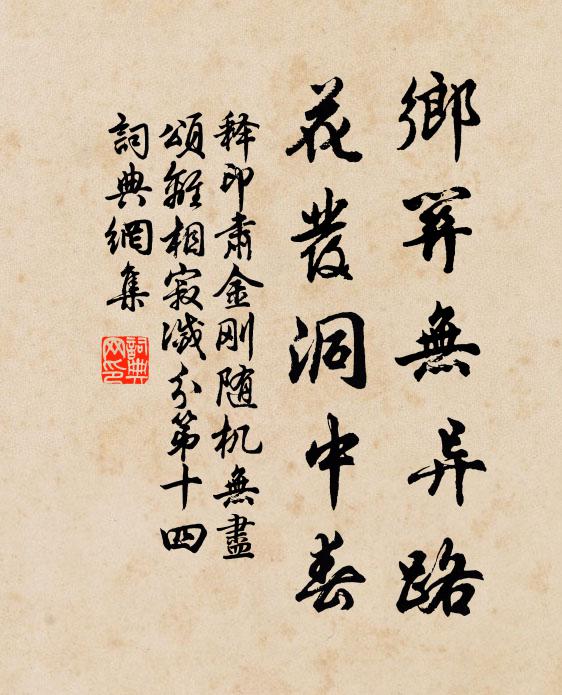 鄉關無异路
花發洞中春
释印肅金刚随机無盡
頌離相寂滅分第十四
詞典網集
詞典网印